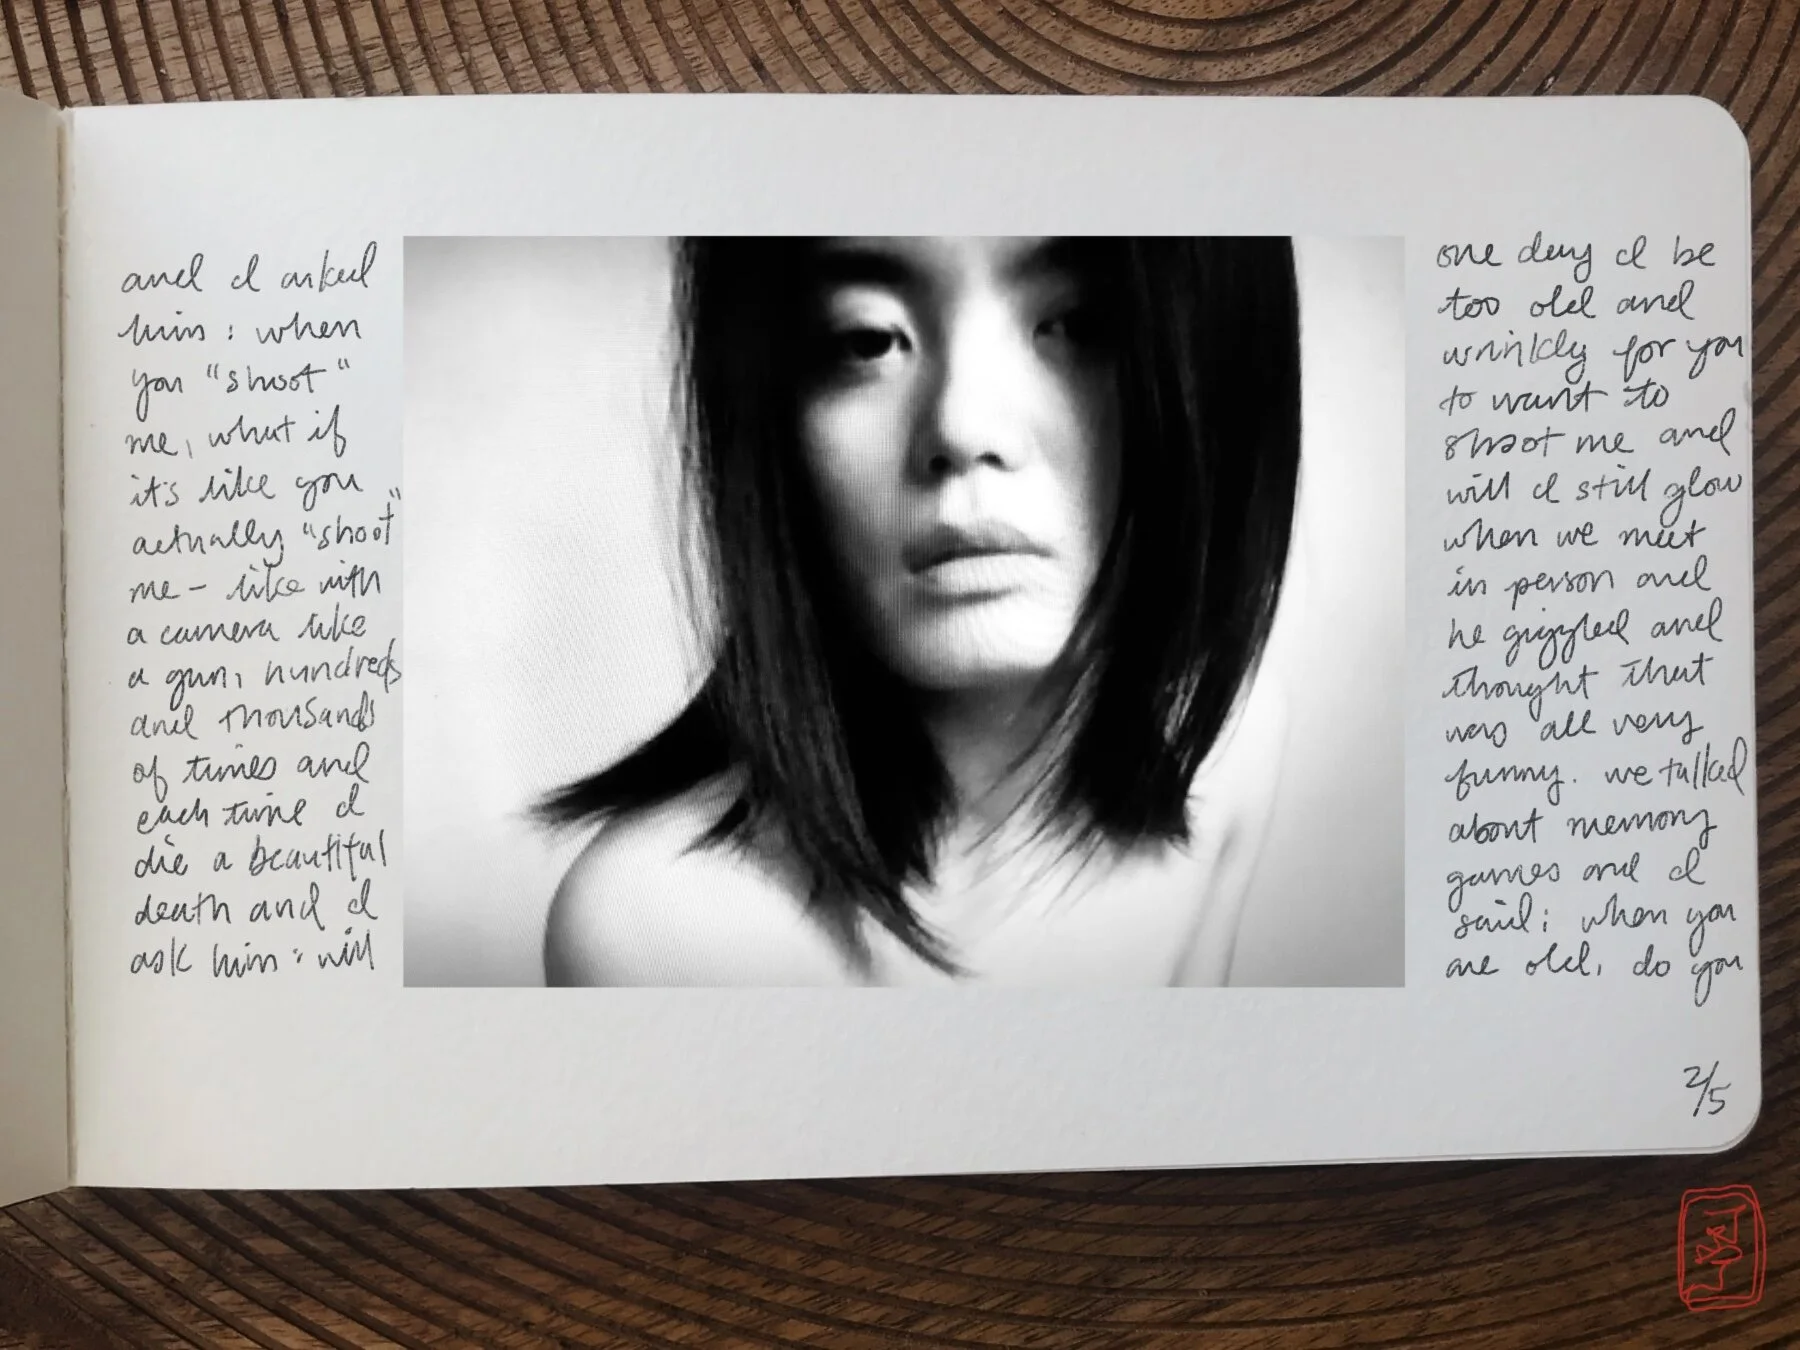 and I asked
him: when
you "shoot"
me, what if
it's like you
actually "shoot"
me - like with
a camera like
a gun, hundreds
and thousands
of times and
each time I
die a beautiful
death and I
ask him: will
one day I be
too old and
wrinkly for you
to want to
shoot me and
will I still glow
when we meet
in person and
he giggled and
thought that
was all very
funny. we talked
about memory
games and I
said: when you
are old, do you
2/5